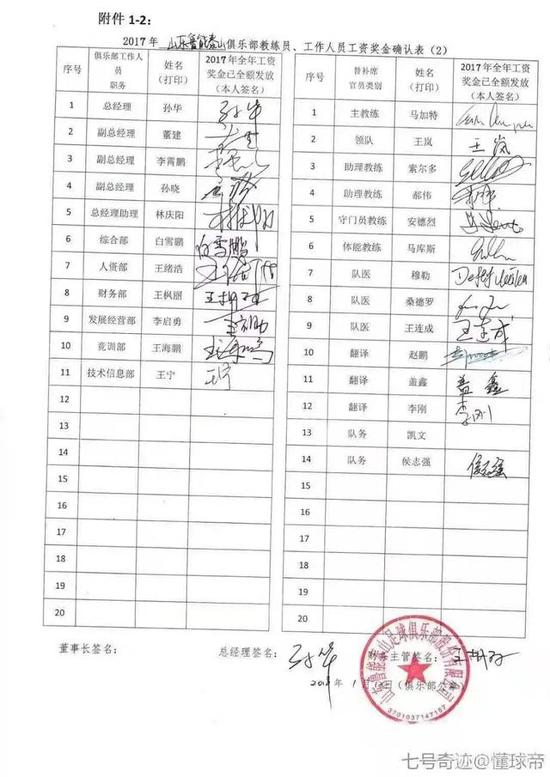 附件 1-2:
2017年 山东鲁能泰山俱乐部教练员、工作人员工资奖金确认表（2）
序号 俱乐部工作人员职务 姓名（打印） 2017年全年工资奖金已全额发放（本人签名）
1 总经理 孙华 孙华
2 副总经理 董建
3 副总经理 李霄鹏
4 副总经理 孙晓
5 总经理助理 林庆阳 林庆阳
6 综合部 白雪鹏 白雪鹏
7 人资部 王绪浩 王绪浩
8 财务部 王枫丽
9 发展经营部 李启勇
10 竞训部 王海鹏 王海鹏
11 技术信息部 王宁 王宁
12
13
14
15
16
17
18
19
20
序号 替补席官员类别 姓名（打印） 2017年全年工资奖金已全额发放（本人签名）
1 主教练 马加特
2 领队 王岚 王岚
3 助理教练 索尔多
4 助理教练 郝伟 郝伟
5 守门员教练 安德烈
6 体能教练 马库斯
7 队医 穆勒
8 队医 桑德罗
9 队医 王连成 王连成
10 翻译 赵鹏
11 翻译 盖鑫 盖鑫
12 翻译 李刚 李刚
13 队务 凯文
14 队务 侯志强 侯志强
15
16
17
18
19
20
董事长签名：
总经理签名： 孙华
财务主管签名：
年 1 月 （俱乐部公
3701037147157
七号奇迹@懂球帝